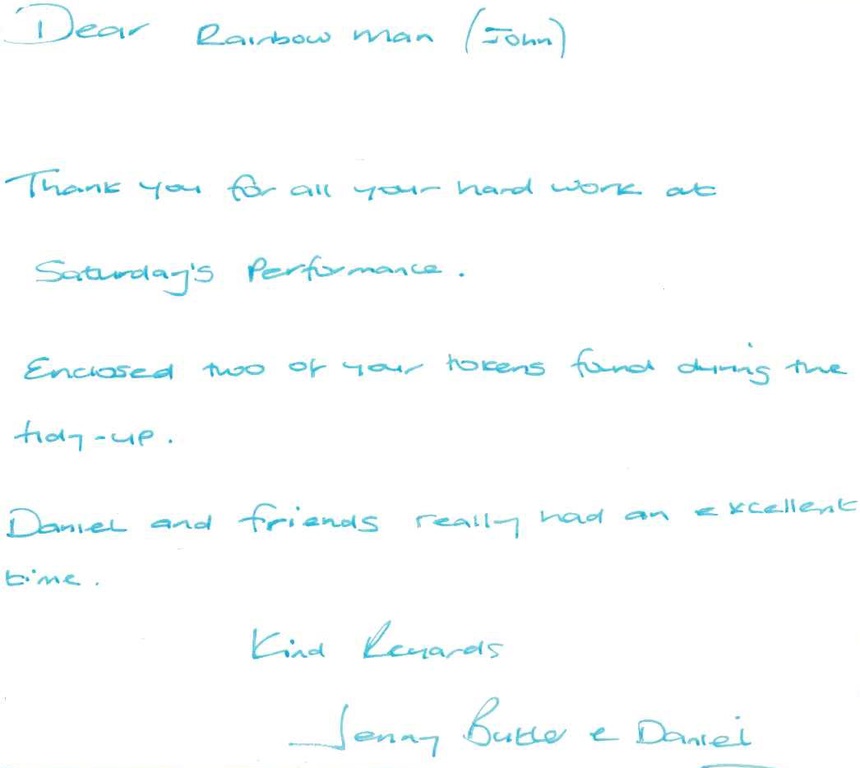 Dear Rainbow man (John)
Thank you for all your hard work at
Saturday's Performance.
Enclosed two of your tokens found during the
tidy-up.
Daniel and friends really had an excellent
time.
Kind Regards
Jenny Butler & Daniel